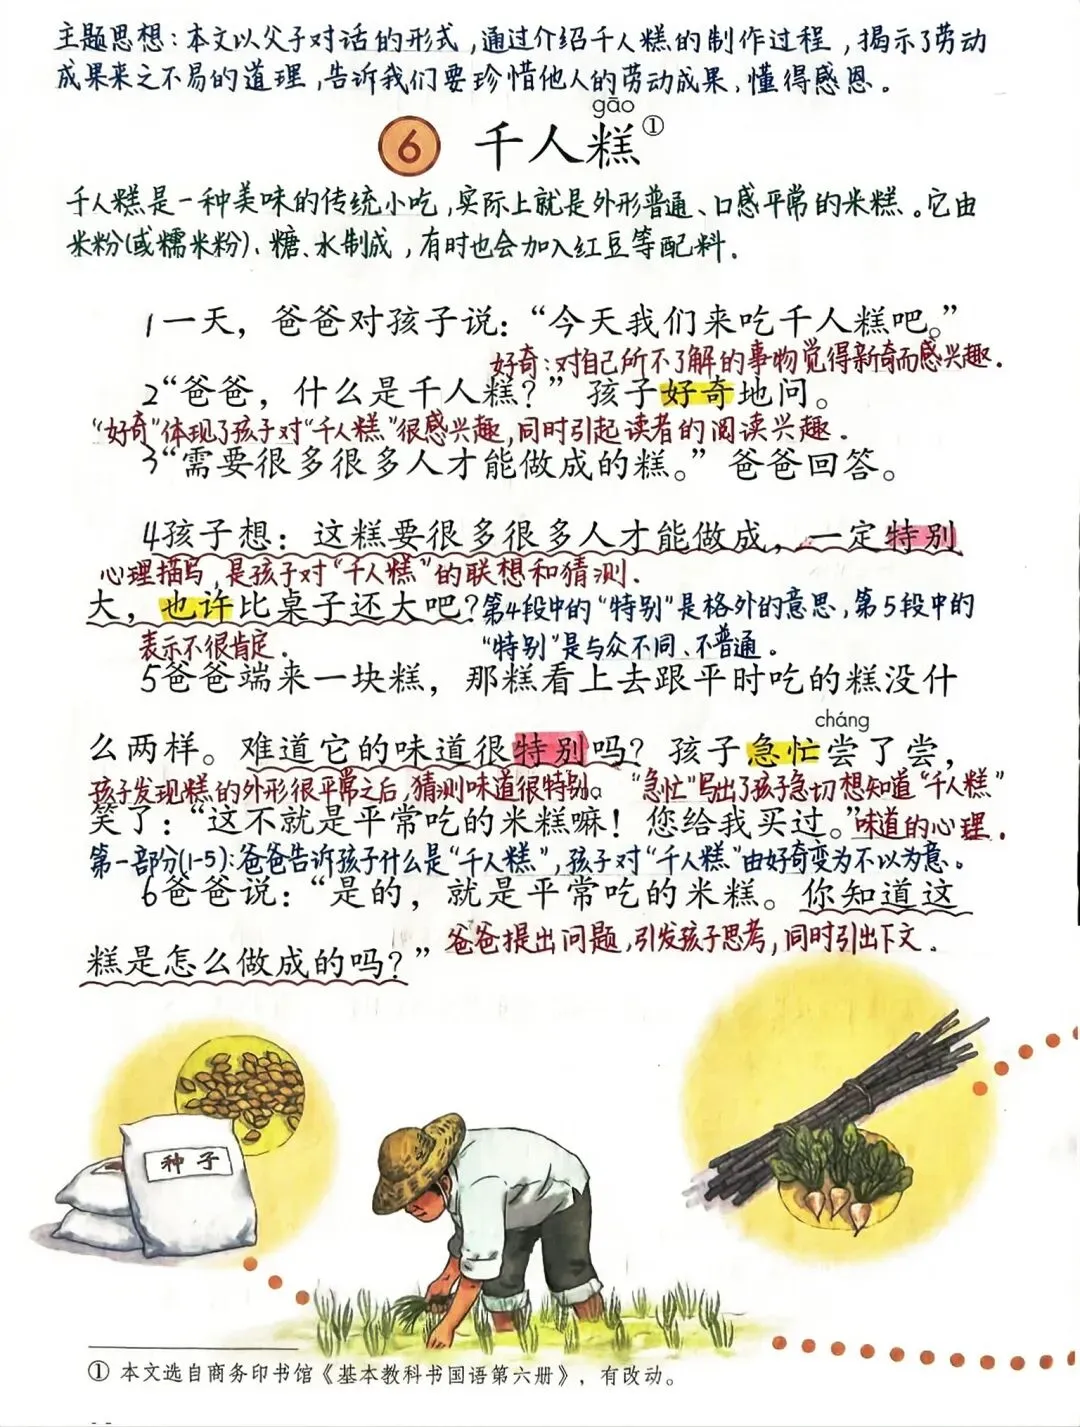 主题思想：本文以父子对话的形式，通过介绍千人糕的制作过程，揭示了劳动
成果来之不易的道理，告诉我们要珍惜他人的劳动成果，懂得感恩。
gāo
6 千人糕①
千人糕是一种美味的传统小吃，实际上就是外形普通、口感平常的米糕。它由
米粉(或糯米粉)、糖、水制成，有时也会加入红豆等配料.
1一天，爸爸对孩子说：“今天我们来吃千人糕吧。”
好奇：对自己所不了解的事物觉得新奇而感兴趣.
2“爸爸，什么是千人糕？”孩子好奇地问。
“好奇”体现了孩子对“千人糕”很感兴趣，同时引起读者的阅读兴趣.
3“需要很多很多人才能做成的糕。”爸爸回答。
4孩子想：这糕要很多很多人才能做成，一定特别
心理描写，是孩子对“千人糕”的联想和猜测.
大，也许比桌子还大吧？第4段中的“特别”是格外的意思，第5段中的
表示不很肯定. “特别”是与众不同、不普通。
5爸爸端来一块糕，那糕看上去跟平时吃的糕没什
cháng
么两样。难道它的味道很特别吗？孩子急忙尝了尝，
孩子发现糕的外形很平常之后，猜测味道很特别。 “急忙”写出了孩子急切想知道“千人糕”
笑了：“这不就是平常吃的米糕嘛！您给我买过。”味道的心理.
第一部分(1-5)：爸爸告诉孩子什么是“千人糕”，孩子对“千人糕”由好奇变为不以为意。
6爸爸说：“是的，就是平常吃的米糕。你知道这
糕是怎么做成的吗？”爸爸提出问题，引发孩子思考，同时引出下文.
种子
① 本文选自商务印书馆《基本教科书国语第六册》，有改动。